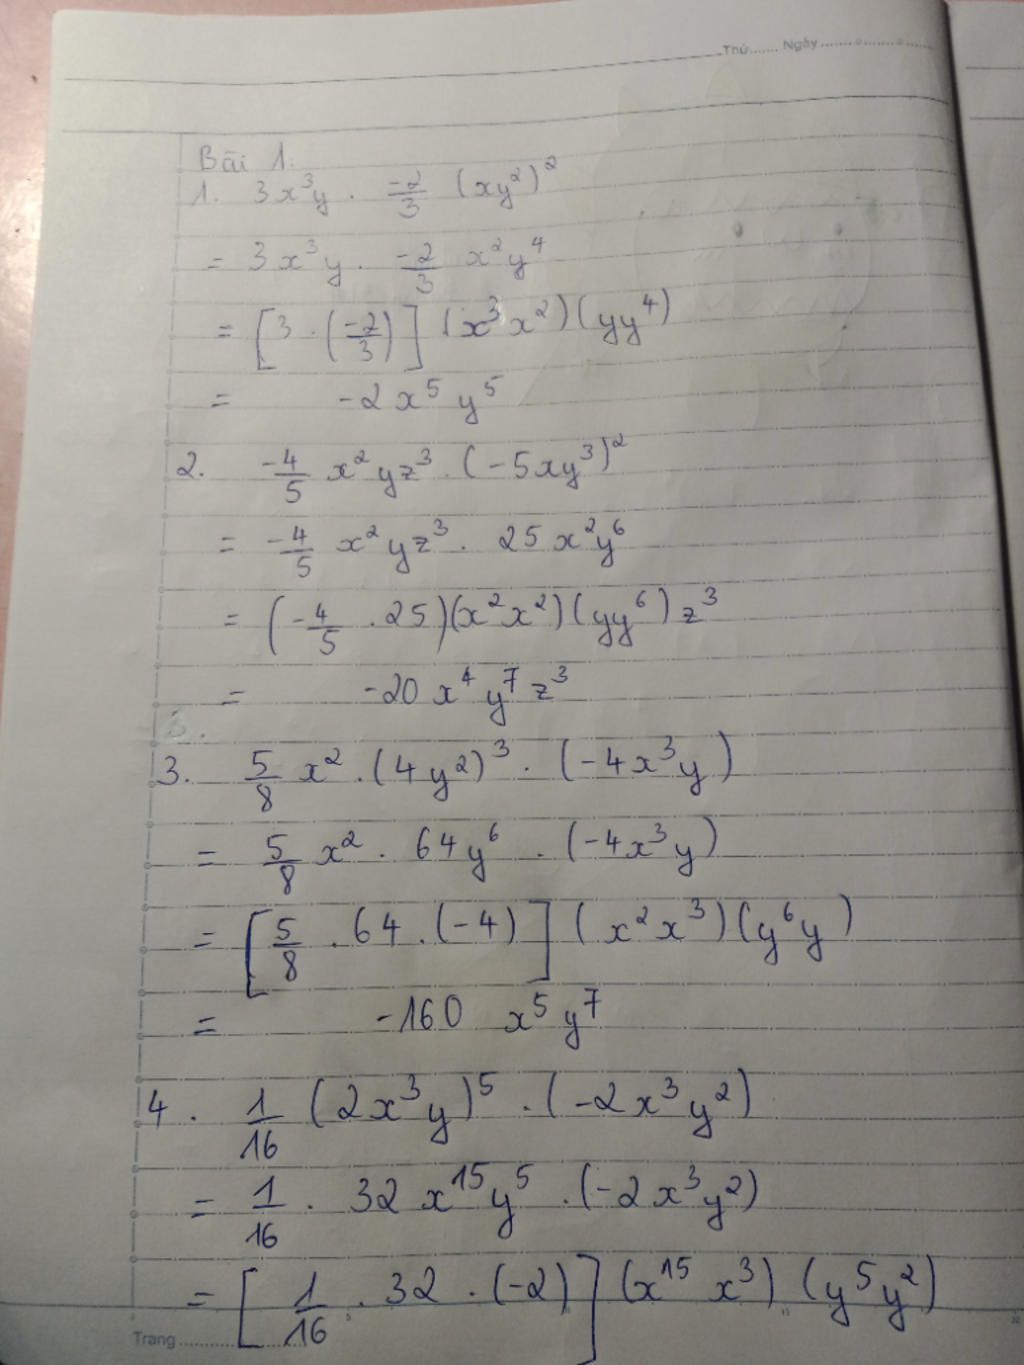 Thứ....... Ngày....................
Bài 1:
1. 3x³y . -2/3 (xy²)²
= 3x³y . -2/3 x²y⁴
= [3 . (-2/3)] (x³x²)(yy⁴)
= -2x⁵y⁵
2. -4/5 x²yz³ . (-5xy³)²
= -4/5 x²yz³ . 25x²y⁶
= (-4/5 . 25)(x²x²)(yy⁶)z³
= -20x⁴y⁷z³
3.
3. 5/8 x² . (4y²)³ . (-4x³y)
= 5/8 x² . 64y⁶ . (-4x³y)
= [5/8 . 64 . (-4)] (x²x³)(y⁶y)
= -160 x⁵y⁷
4. 1/16 (2x³y)⁵ . (-2x³y²)
= 1/16 . 32x¹⁵y⁵ . (-2x³y²)
= [1/16 . 32 . (-2)] (x¹⁵x³) (y⁵y²)
Trang................